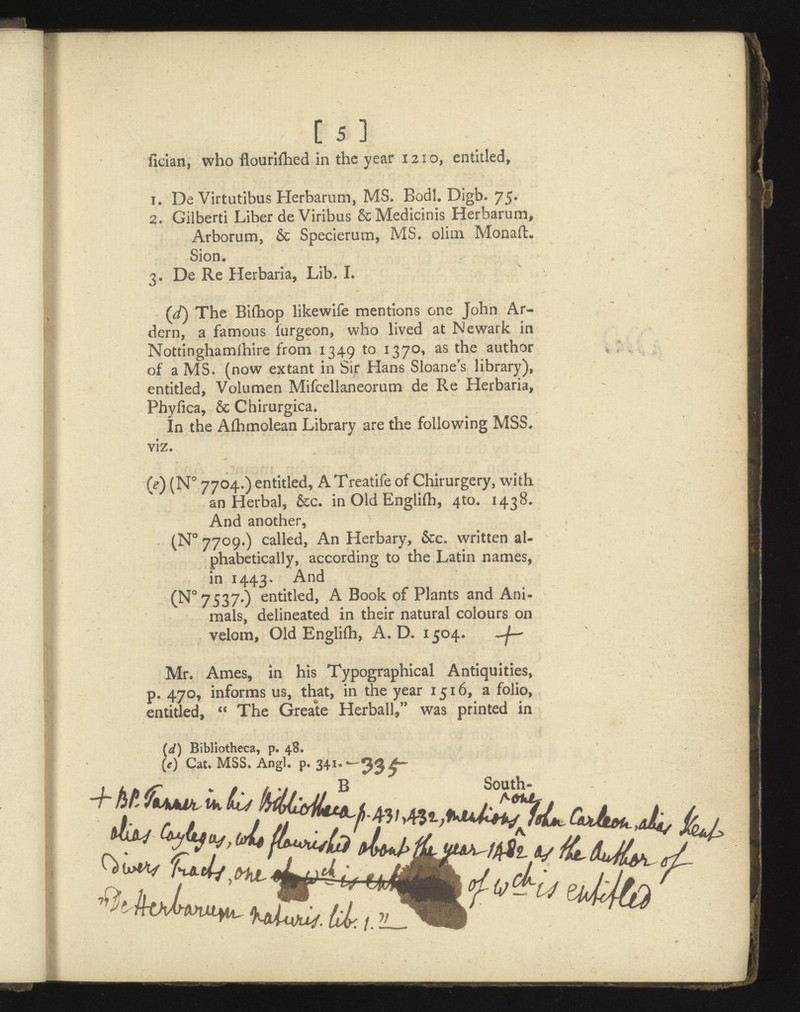 [ 5 ]
ſician, who flouriſhed in the year 1210, entitled,
1. De Virtutibus Herbarum, MS. Bodl. Digb. 75.
2. Gilberti Liber de Viribus & Medicinis Herbarum,
Arborum, & Specierum, MS. olim Monaſt.
Sion.
3. De Re Herbaria, Lib. I.
(d) The Biſhop likewiſe mentions one John Ar-
dern, a famous ſurgeon, who lived at Newark in
Nottinghamſhire from 1349 to 1370, as the author
of a MS. (now extant in Sir Hans Sloane's library),
entitled, Volumen Miſcellaneorum de Re Herbaria,
Phyſica, & Chirurgica.
In the Aſhmolean Library are the following MSS.
viz.
(e) (N° 7704.) entitled, A Treatiſe of Chirurgery, with
an Herbal, &c. in Old Engliſh, 4to. 1438.
And another,
(N° 7709.) called, An Herbary, &c. written al-
phabetically, according to the Latin names,
in 1443. And
(N° 7537.) entitled, A Book of Plants and Ani-
mals, delineated in their natural colours on
velom, Old Engliſh, A. D. 1504. +
Mr. Ames, in his Typographical Antiquities,
p. 470, informs us, that, in the year 1516, a folio,
entitled, “ The Greate Herball,” was printed in
(d) Bibliotheca, p. 48.
(e) Cat. MSS. Angl. p. 341. - 335
B South-
+ BP. Tanner in his Bibliotheca p. 431, 432, mentions ^one John Carleon, alias Kent
alias Caylegus, who flourished about the year 1482 as the Author of
Divers Tracts, one of wch is of wch is entitled
"De Herbarum naturis. lib. 1."